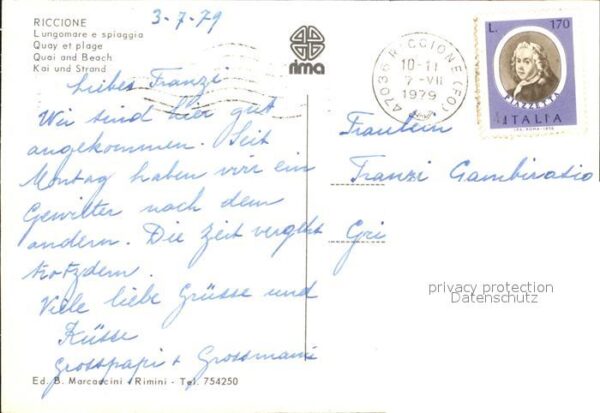 RICCIONE
Lungomare e spiaggia
Quay et plage
Quai and Beach
Kai und Strand
3-7-79
rima
Liebes Franzi
Wir sind hier gut
angekommen. Seit
Montag haben wir ein
Gewitter nach dem
andern. Die Zeit vergeht
trotzdem.
Viele liebe Grüsse und
Küsse
Grosspapi + Grossmami
Ed. B. Marcaccini - Rimini - Tel. 754250
47036 RICCIONE (FO)
10-11
7-VII
1979
L. 170
PIAZZETTA
ITALIA
Fräulein
Franzi Gambiratio
Gri
privacy protection
Datenschutz